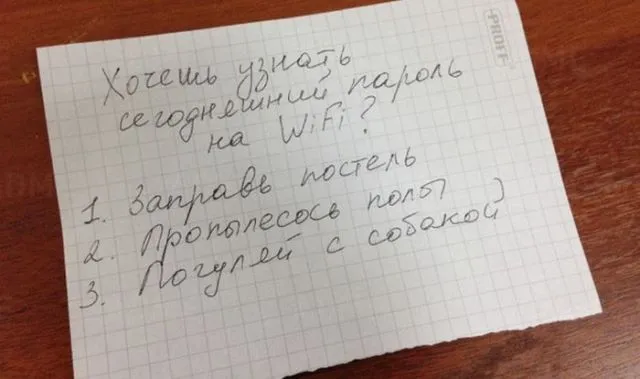 PROFF
Хочешь узнать
сегодняшний пароль
на WiFi?
1. Заправь постель
2. Пропылесось полы
3. Погуляй с собакой